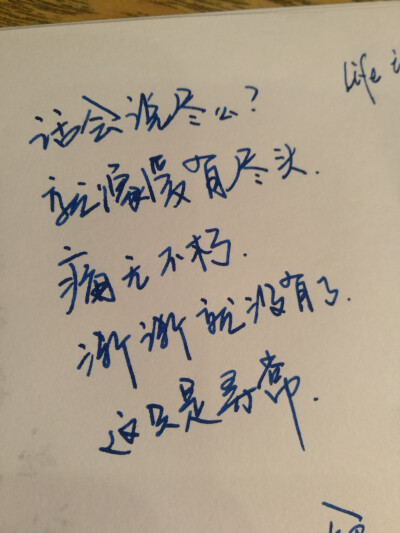 life
话会说尽么?
就像没有尽头.
痛无不朽.
渐渐就没有了.
这只是寻常.